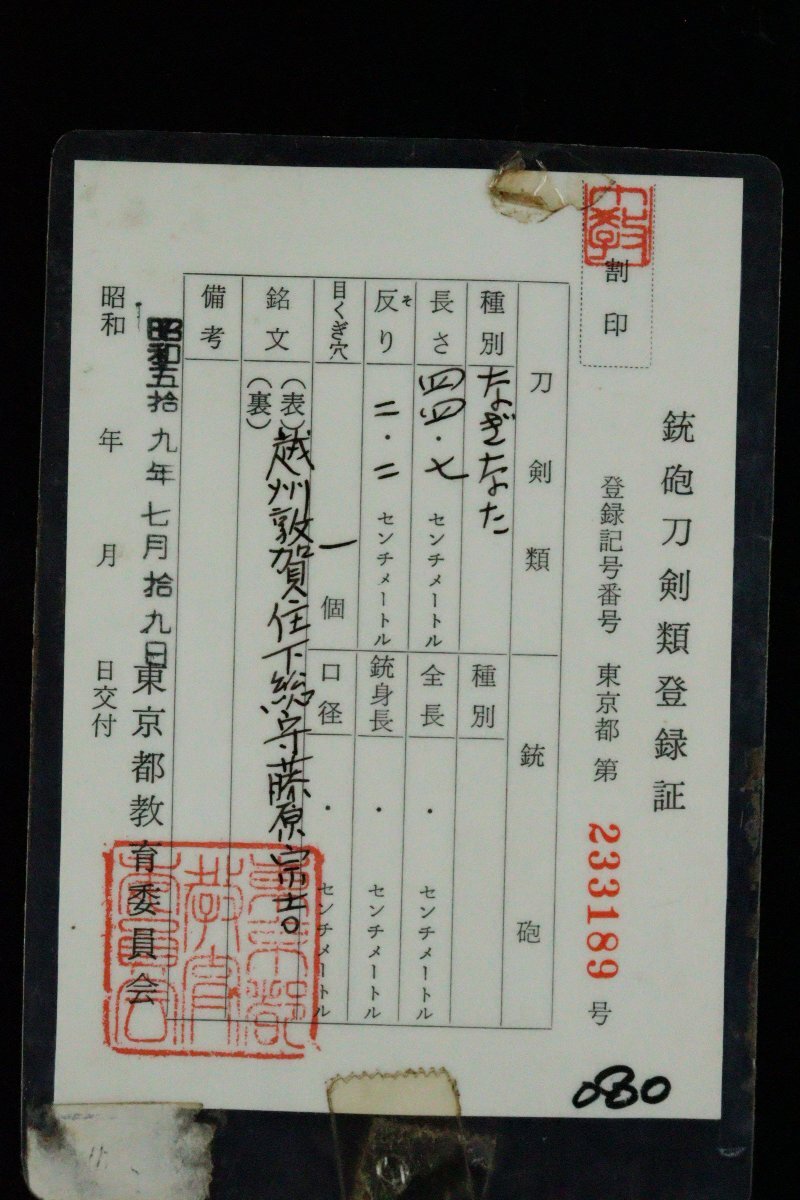 銃砲刀剣類登録証
割印
登録記号番号 東京都 第 233189 号
刀剣類
種別 なぎなた
長さ 四四・七 センチメートル
反り 二・二 センチメートル
そ
目くぎ穴 一個
銘文 (表) 越州敦賀住下総守藤原宗吉
(裏)
備考
銃砲
種別
全長 ・ センチメートル
銃身長 ・ センチメートル
口径 ・ センチメートル
昭和 年 月 日交付
昭和五拾九年七月拾九日
東京都教育委員会
東京都教育委員会
080